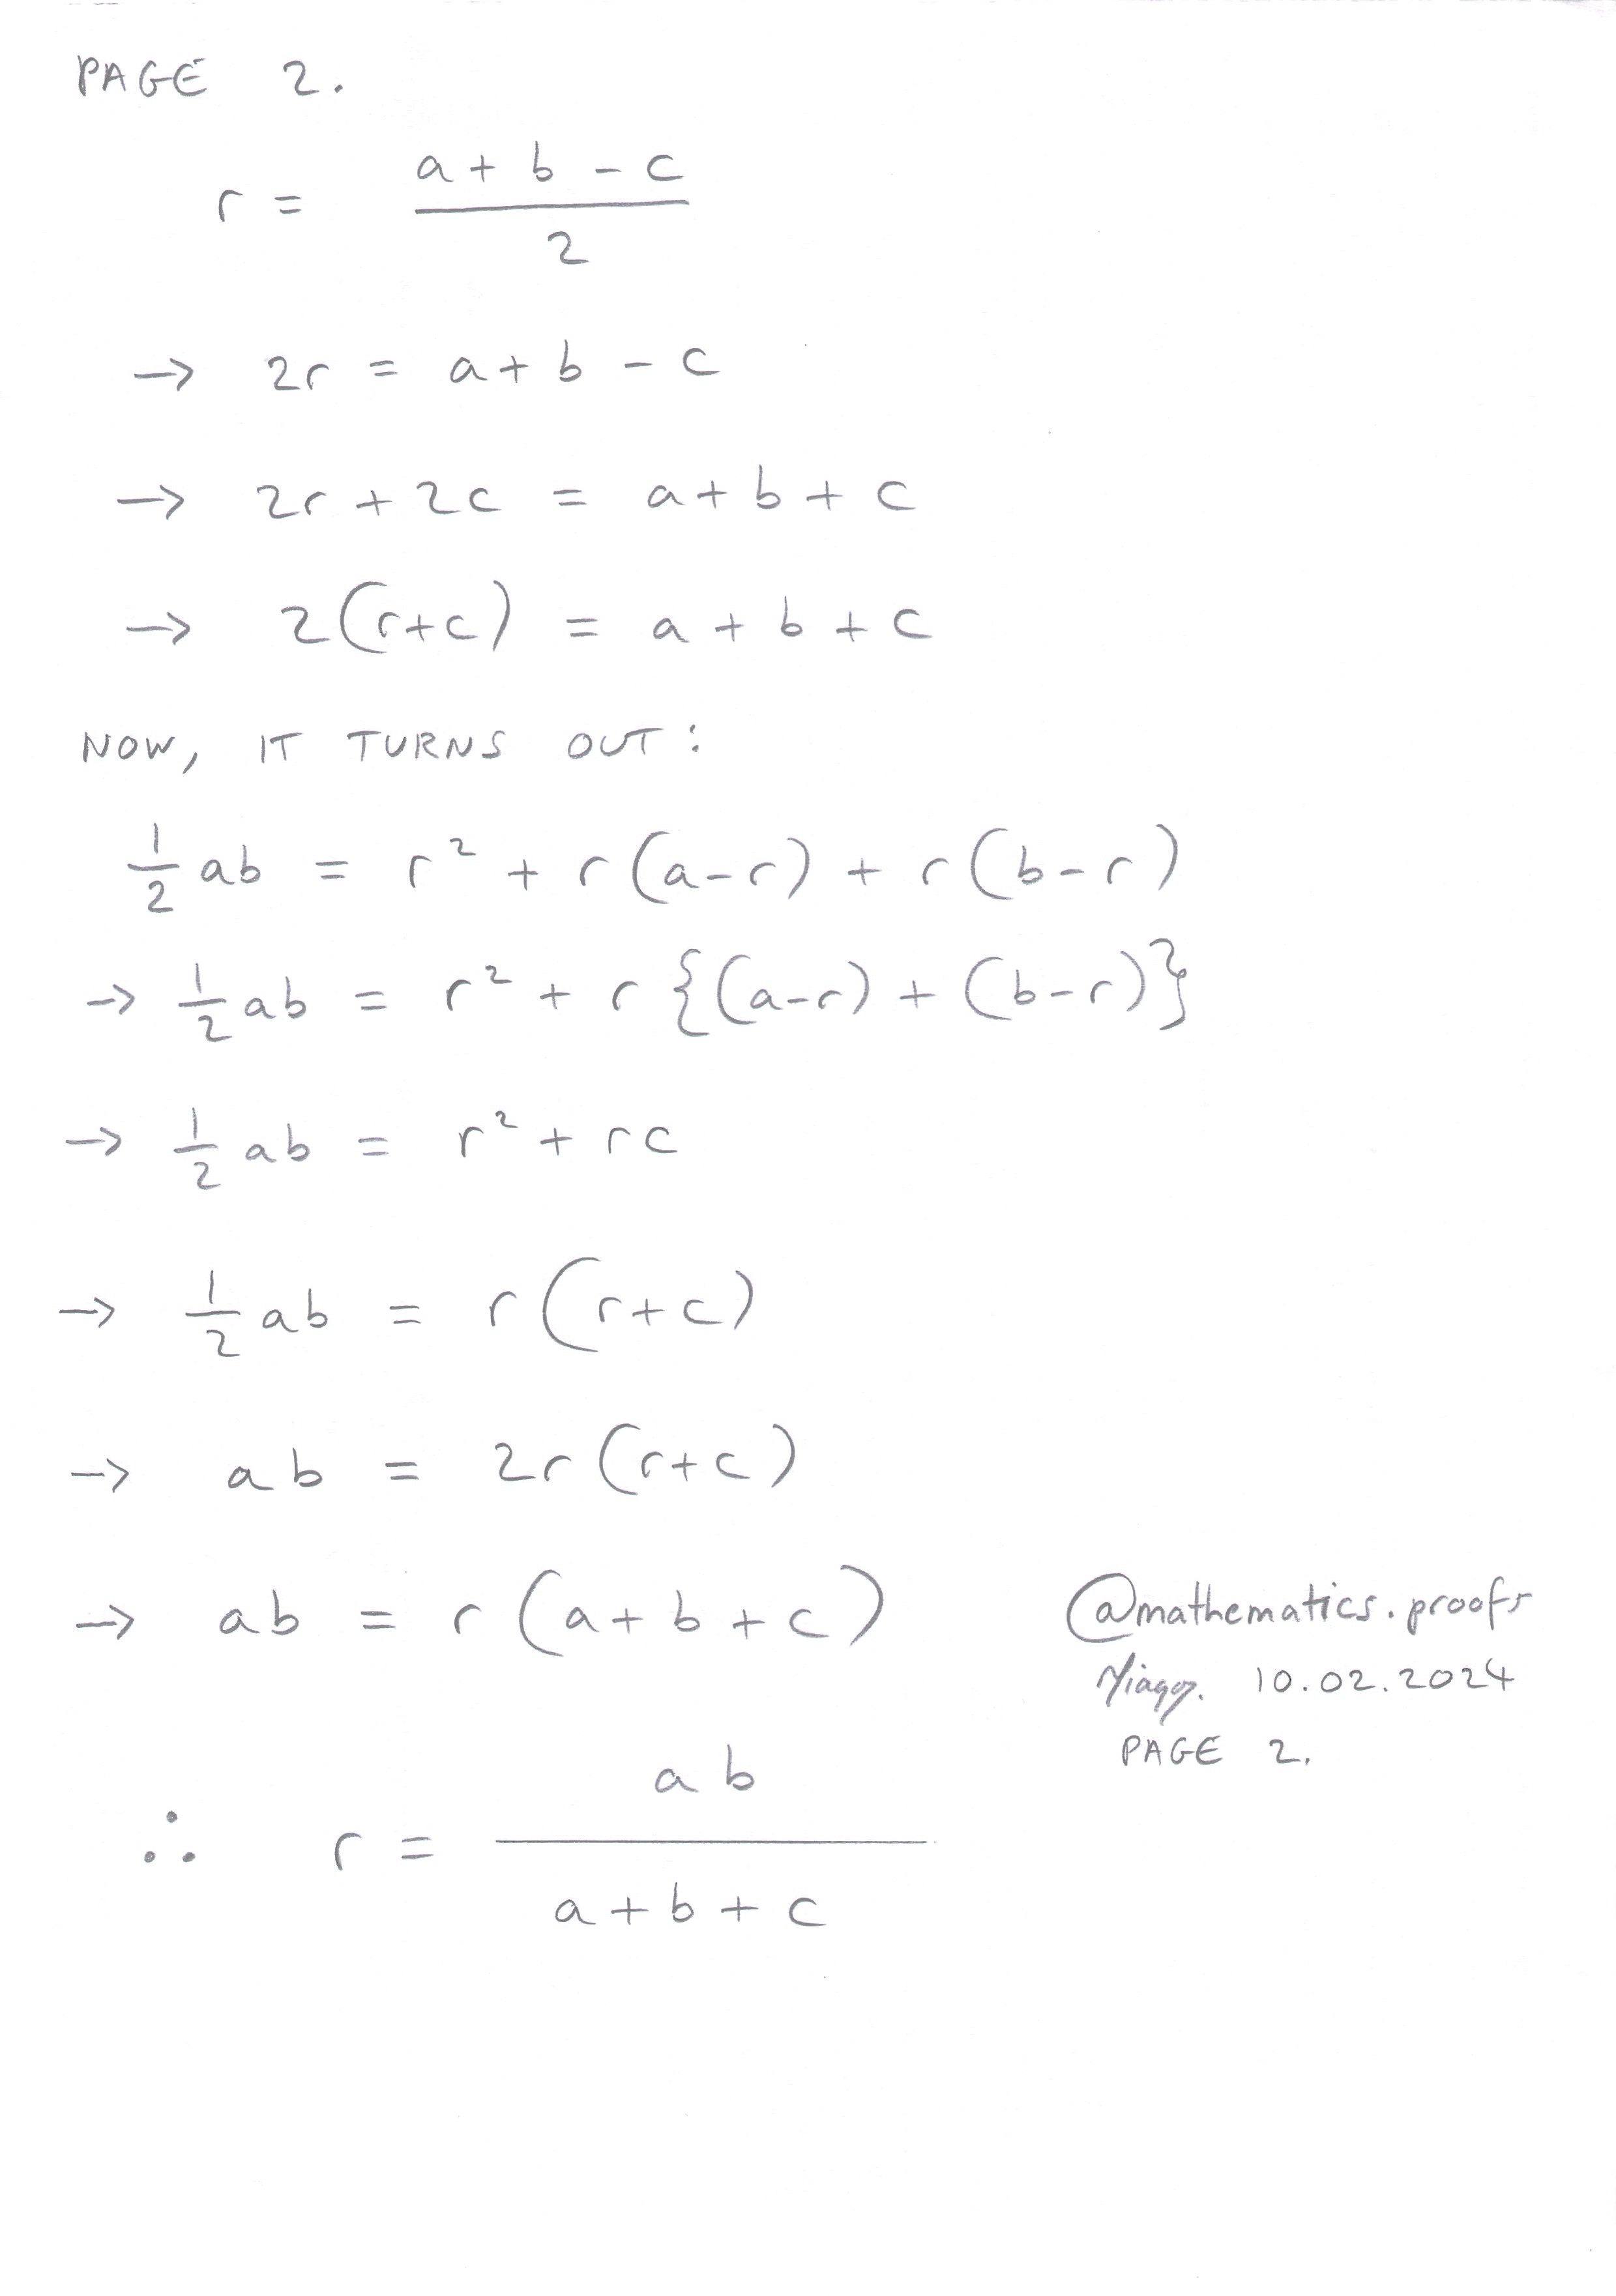 PAGE 2.
r = a + b - c / 2
→ 2r = a + b - c
→ 2r + 2c = a + b + c
→ 2(r+c) = a + b + c
NOW, IT TURNS OUT:
1/2 ab = r² + r(a-r) + r(b-r)
→ 1/2 ab = r² + r{(a-r) + (b-r)}
→ 1/2 ab = r² + rc
→ 1/2 ab = r(r+c)
→ ab = 2r(r+c)
→ ab = r(a+b+c)
@mathematics.proofs
10.02.2024
PAGE 2.
∴ r = ab / a+b+c